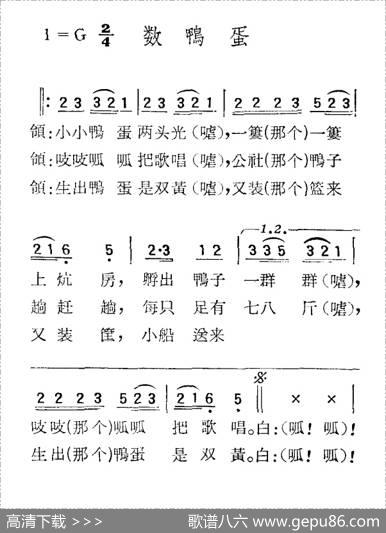 1=G 2/4 数鴨蛋
‖: 2 3 3 2 1 | 2 3 3 2 1 | 2 2 2 3 5 2 3 |
領:小小鴨 蛋 两头光(嘘),一篓(那个)一篓
領:吱吱呱 呱 把歌唱(嘘),公社(那个)鴨子
領:生出鴨 蛋 是双黄(嘘),又装(那个)籃来
1.2.
2 1 6 5 | 2·3 1 2 | 3 3 5 3 2 1 |
上 炕 房, 孵出 鴨子 一群 群(嘘),
趟 赶 趟, 每只 足有 七八 斤(嘘),
又 装 筐, 小船 送来
2 2 2 3 5 2 3 | 2 1 6 5 ‖ × × |
吱吱(那个)呱呱 把 歌 唱。白:(呱! 呱)!
生出(那个)鴨蛋 是 双 黄。白:(呱! 呱)!
高清下载 >>> 歌谱八六 www.gepu86.com